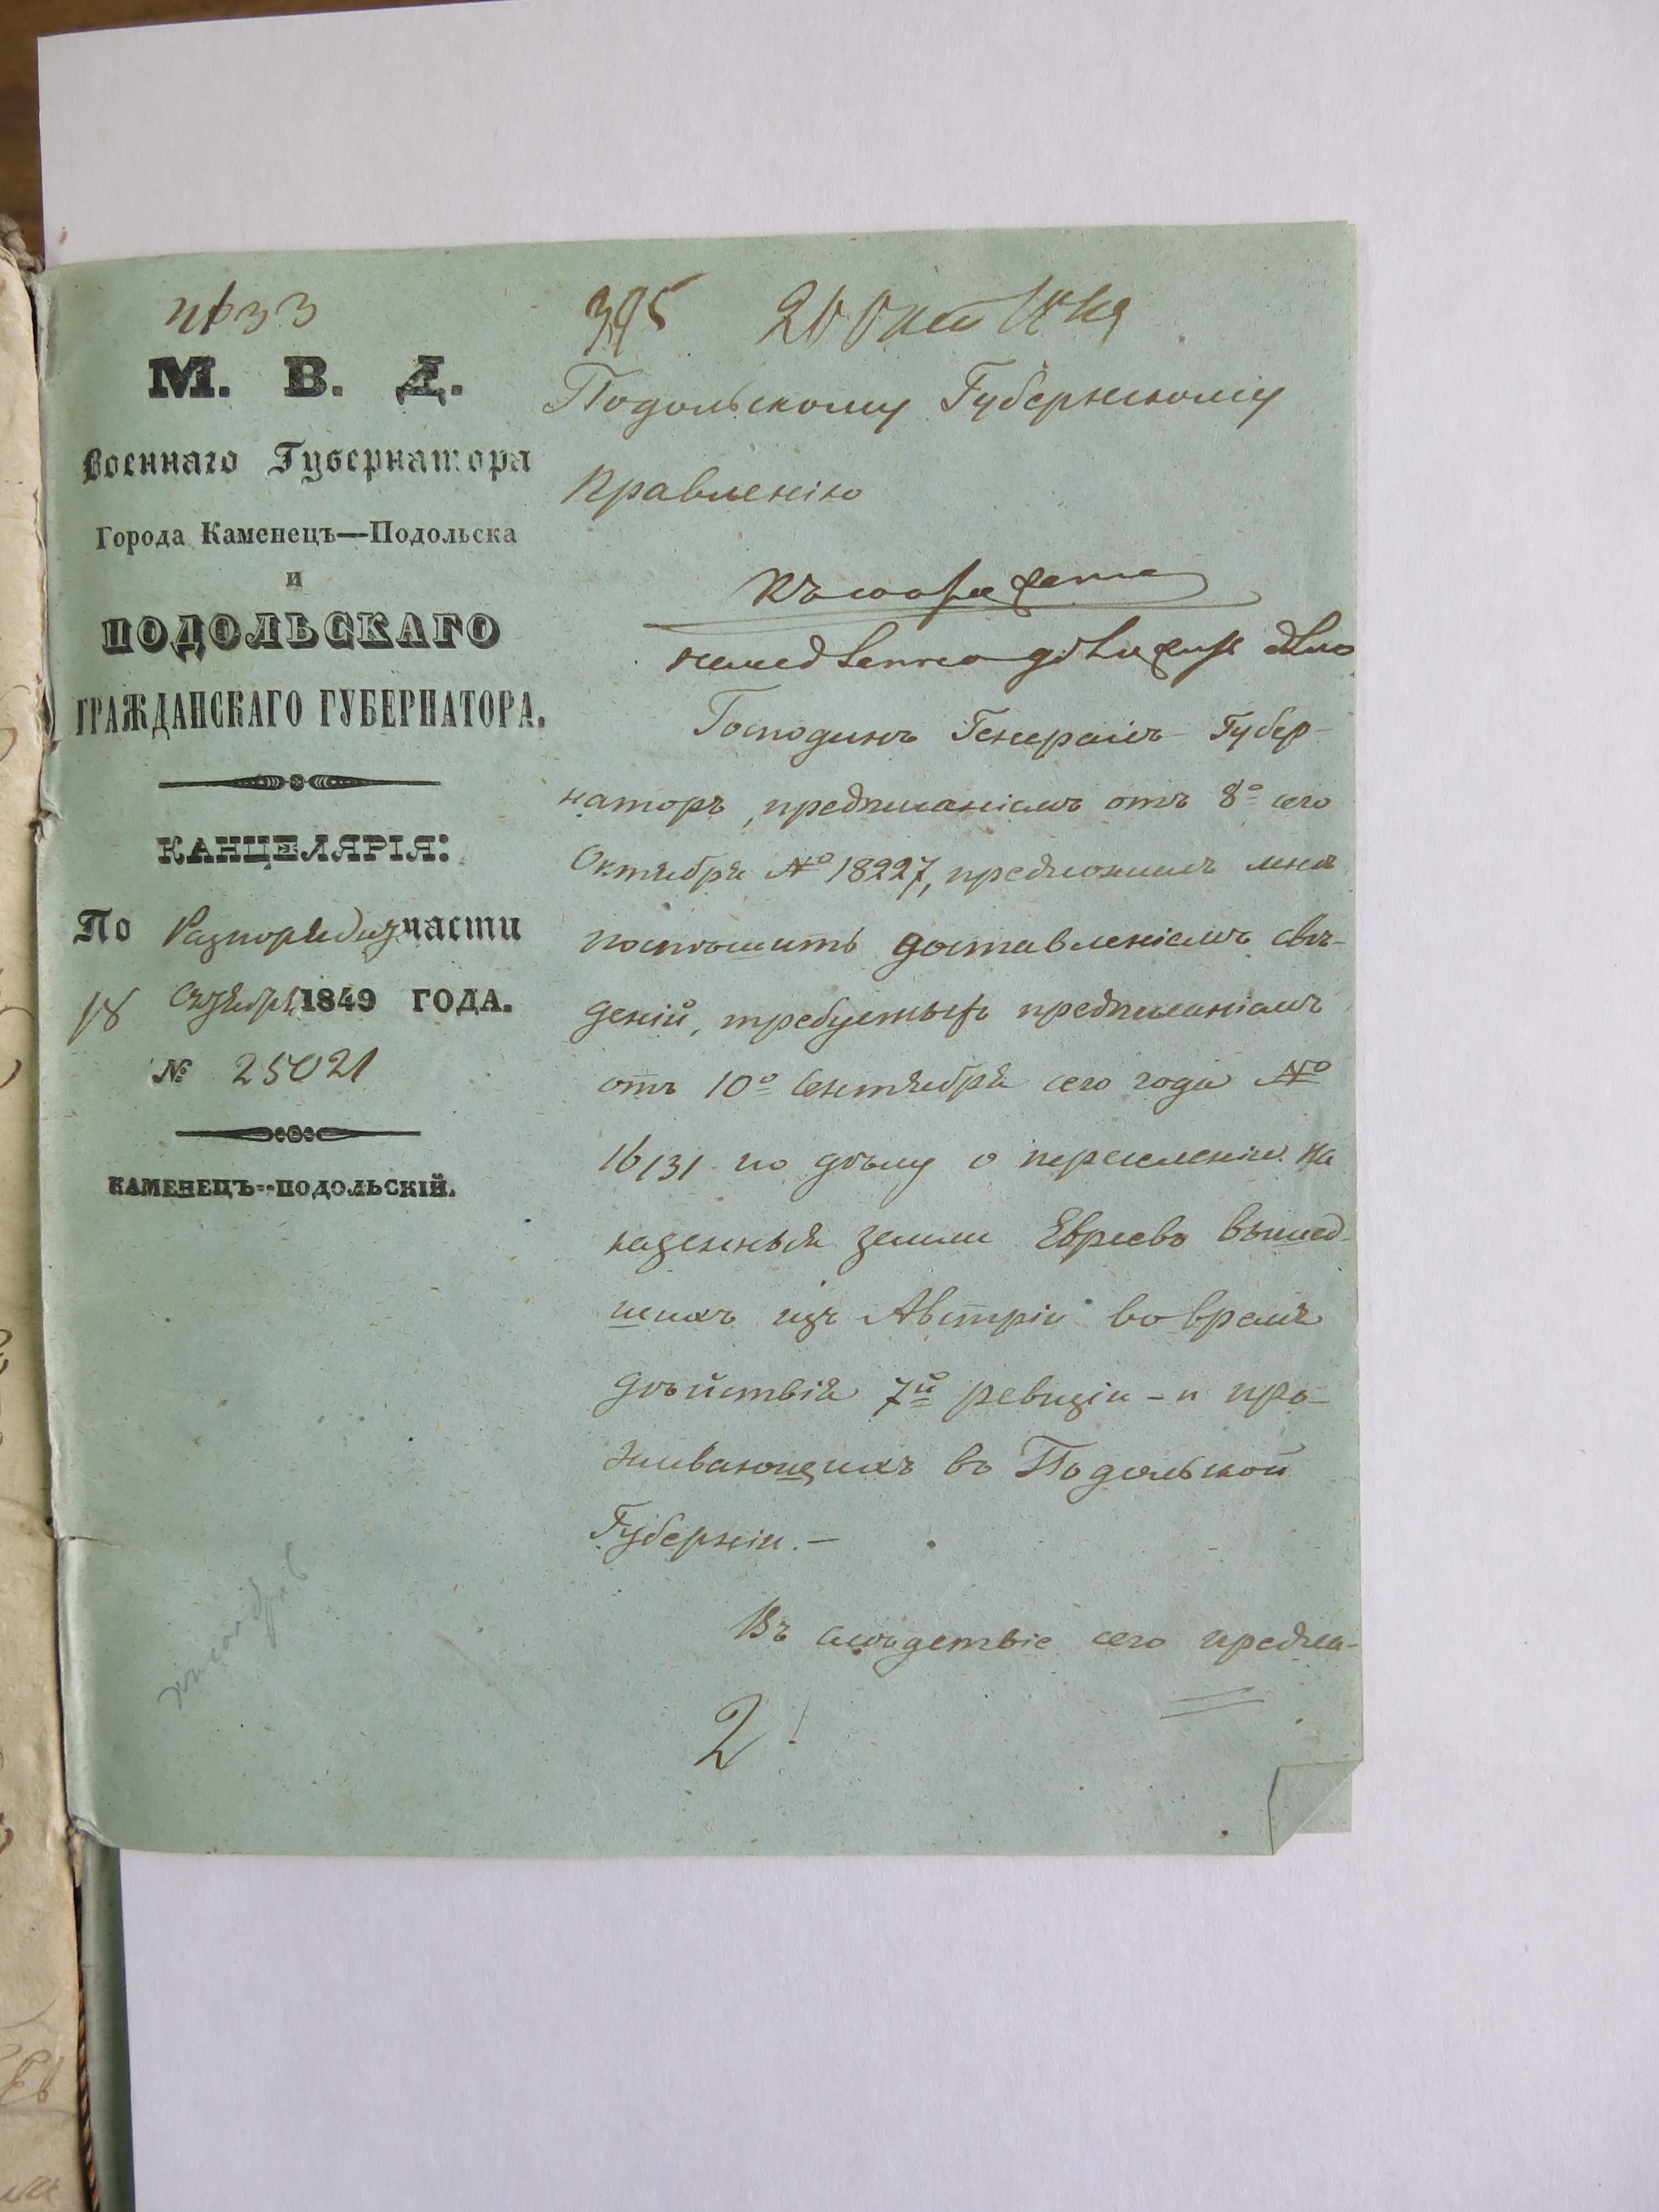 395 20 Окт 1849
М. В. Д.
Военнаго Губернатора
Города Каменецъ—Подольска
и
ПОДОЛЬСКАГО
ГРАЖДАНСКАГО ГУБЕРНАТОРА.
КАНЦЕЛЯРІЯ:
По Разпорядит части
18 Октября 1849 ГОДА.
№ 25021
КАМЕНЕЦЪ-ПОДОЛЬСКІЙ.
Подольскому Губернскому
Правленію
немедленно
Господинъ Генералъ-Губер-
наторъ, предписаніемъ отъ 8º сего
Октября № 18227, предложилъ мнѣ
поспѣшить доставленіемъ свѣ-
деній, требуемыхъ предписаніемъ
отъ 10º Сентября сего года №
16131 по дѣлу о переселеніи на
казенныя земли Евреевъ вышед-
шихъ изъ Австріи во время
дѣйствія 7й ревизіи - и про-
живающихъ въ Подольской
Губерніи. —
Въ слѣдствіе сего предла-
2